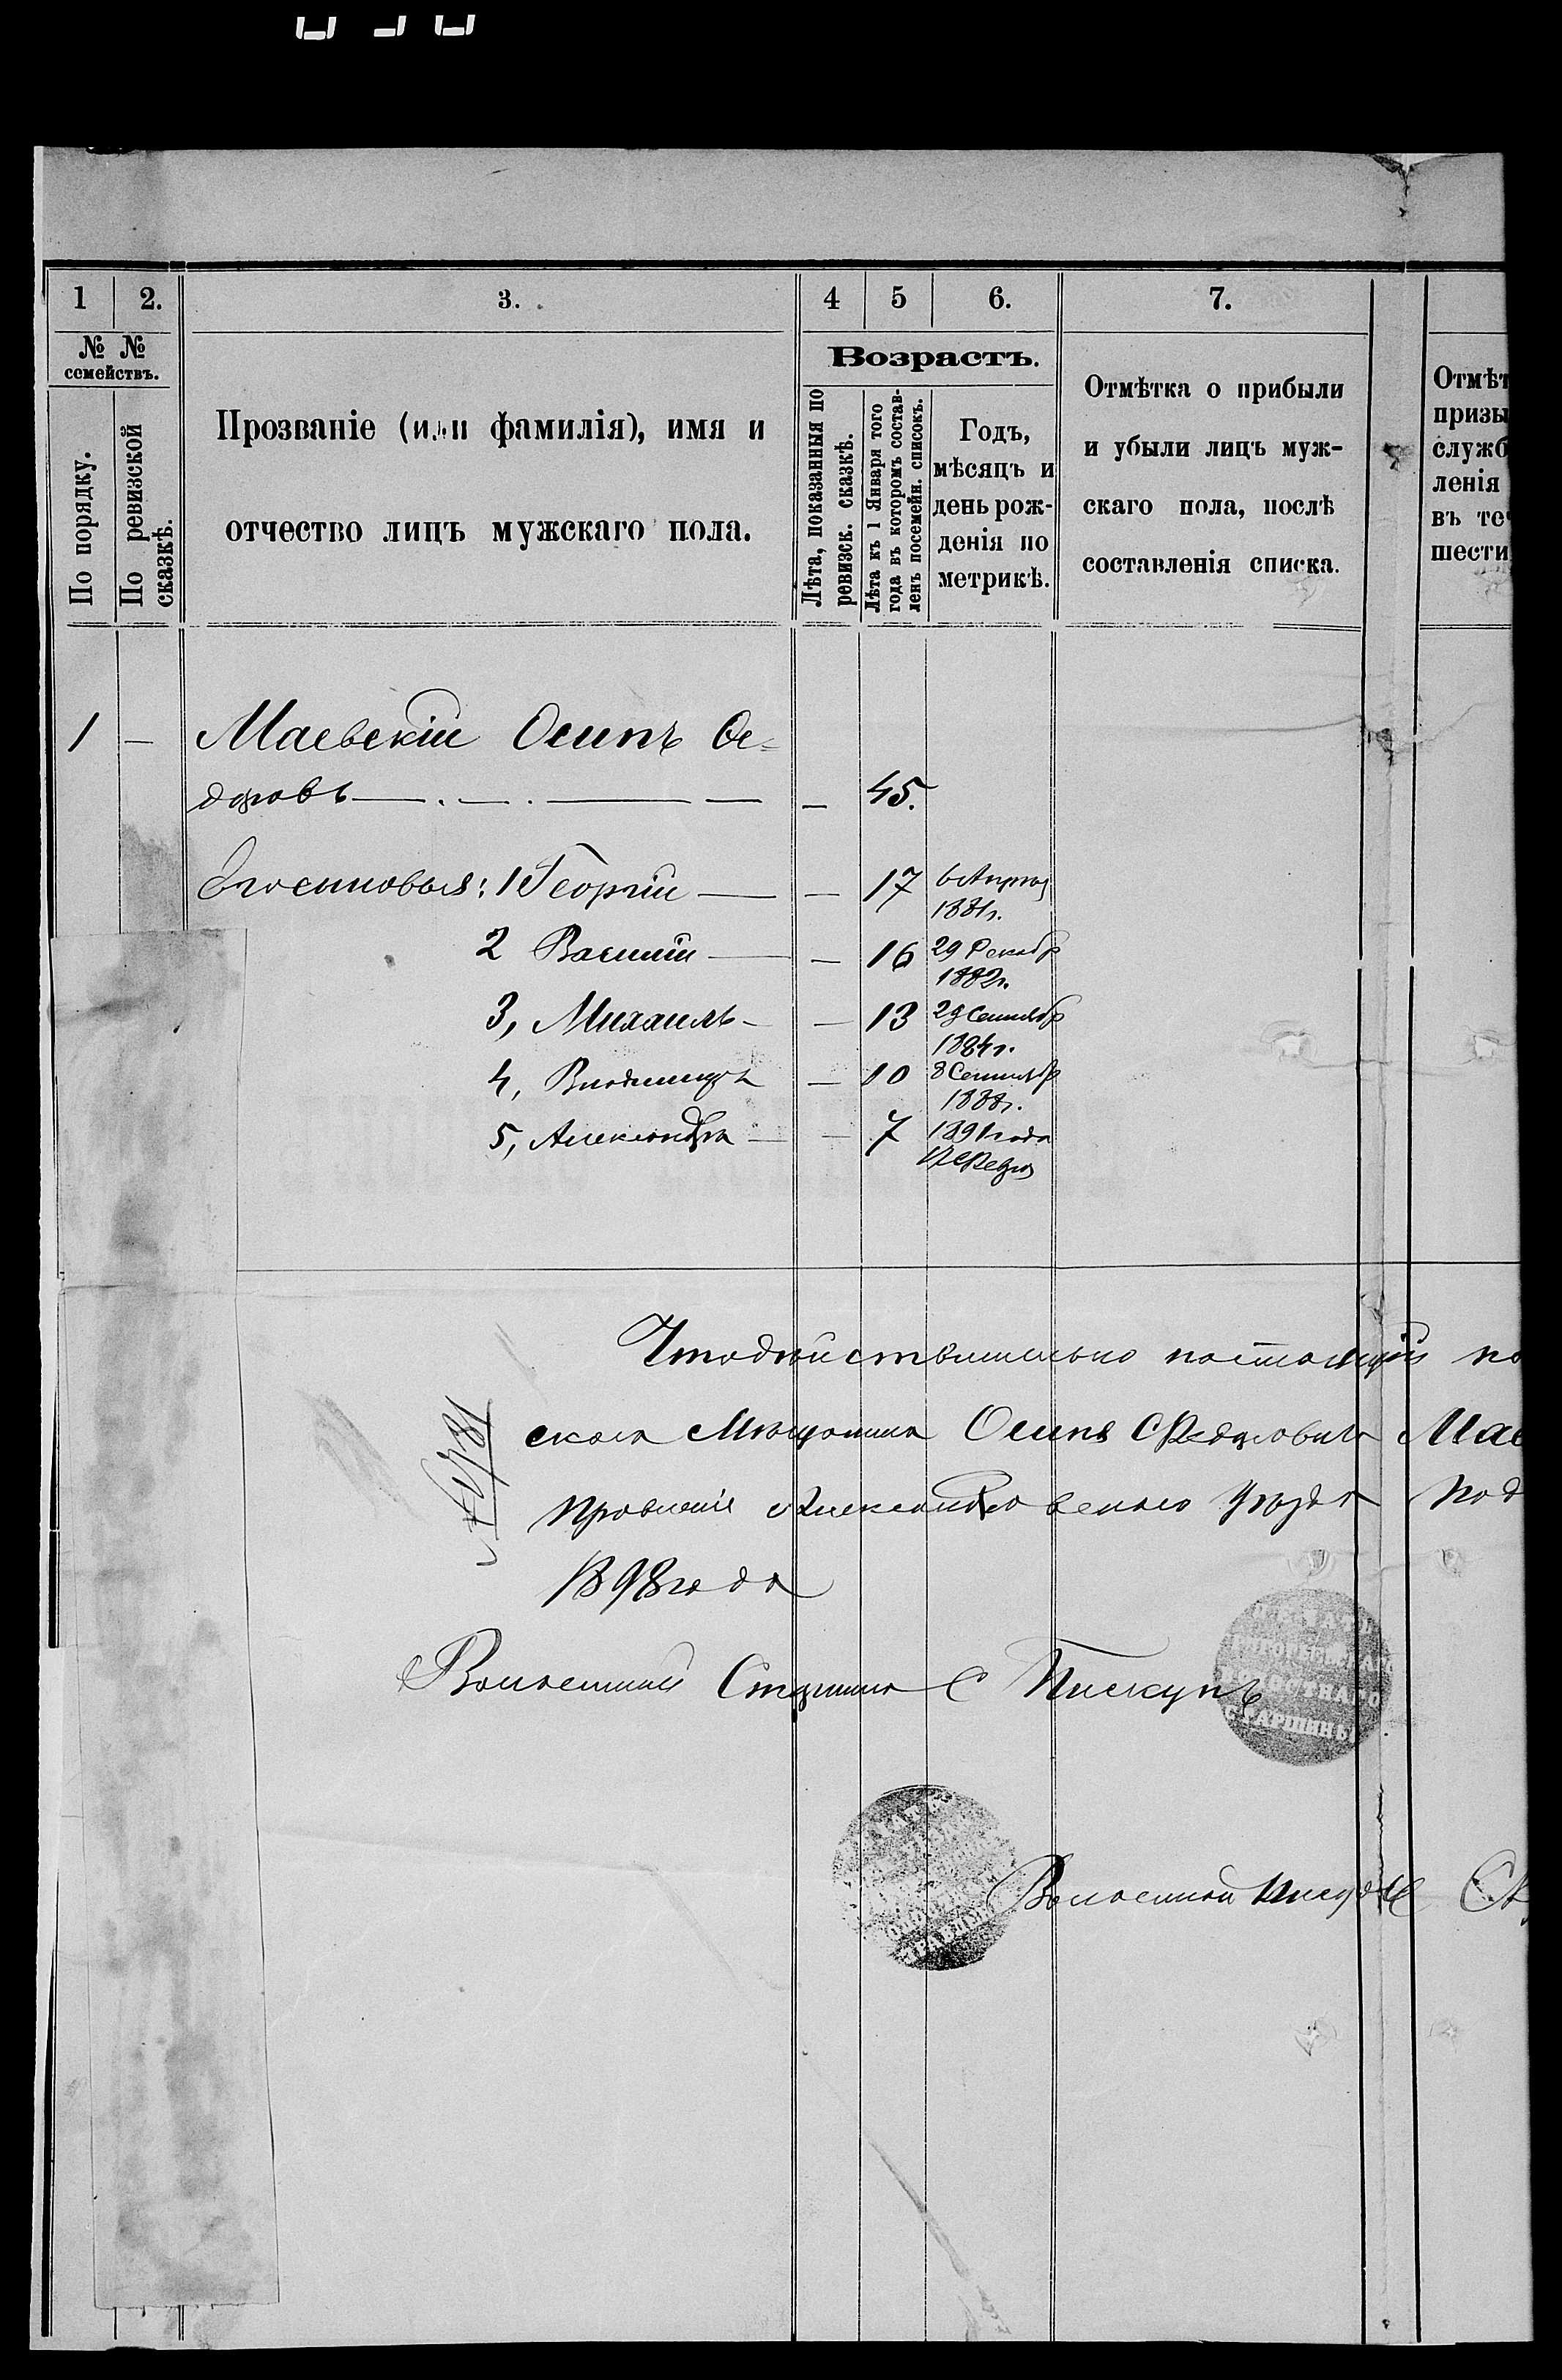 1
2.
3.
4
5
6.
7.
№ №
семействъ.
По порядку.
По ревизской
сказкѣ.
Прозваніе (или фамилія), имя и
отчество лицъ мужскаго пола.
Возрастъ.
Лѣта, показанныя по
ревизск. сказкѣ.
Лѣта къ 1 Января того
года въ которомъ состав-
ленъ посемейн. списокъ.
Годъ,
мѣсяцъ и
день рож-
денія по
метрикѣ.
Отмѣтка о прибыли
и убыли лицъ муж-
скаго пола, послѣ
составленія списка.
Отмѣт
призы
служб
ленія
въ те
шести
1 — Маевскій Осипъ Ѳе-
доровъ — 45.
Его сыновья: 1 Георгій — 17 6 Апрѣля
1881г.
2 Василій — 16 29 Декабр
1882г.
3, Михаилъ — 13 29 Сентябр
1884г.
4, Владиміръ — 10 8 Сентябр
1888г.
5, Александръ — 7 1891 года
Что дѣйствительно настоящій по
скаго Мѣщанина Осипа Федоровича Мае
Правленіе Александровскаго Уѣзда под
1898 года
Волостный Старшина С Пискунъ
СТАРШИНЫ
Волостной Писарь